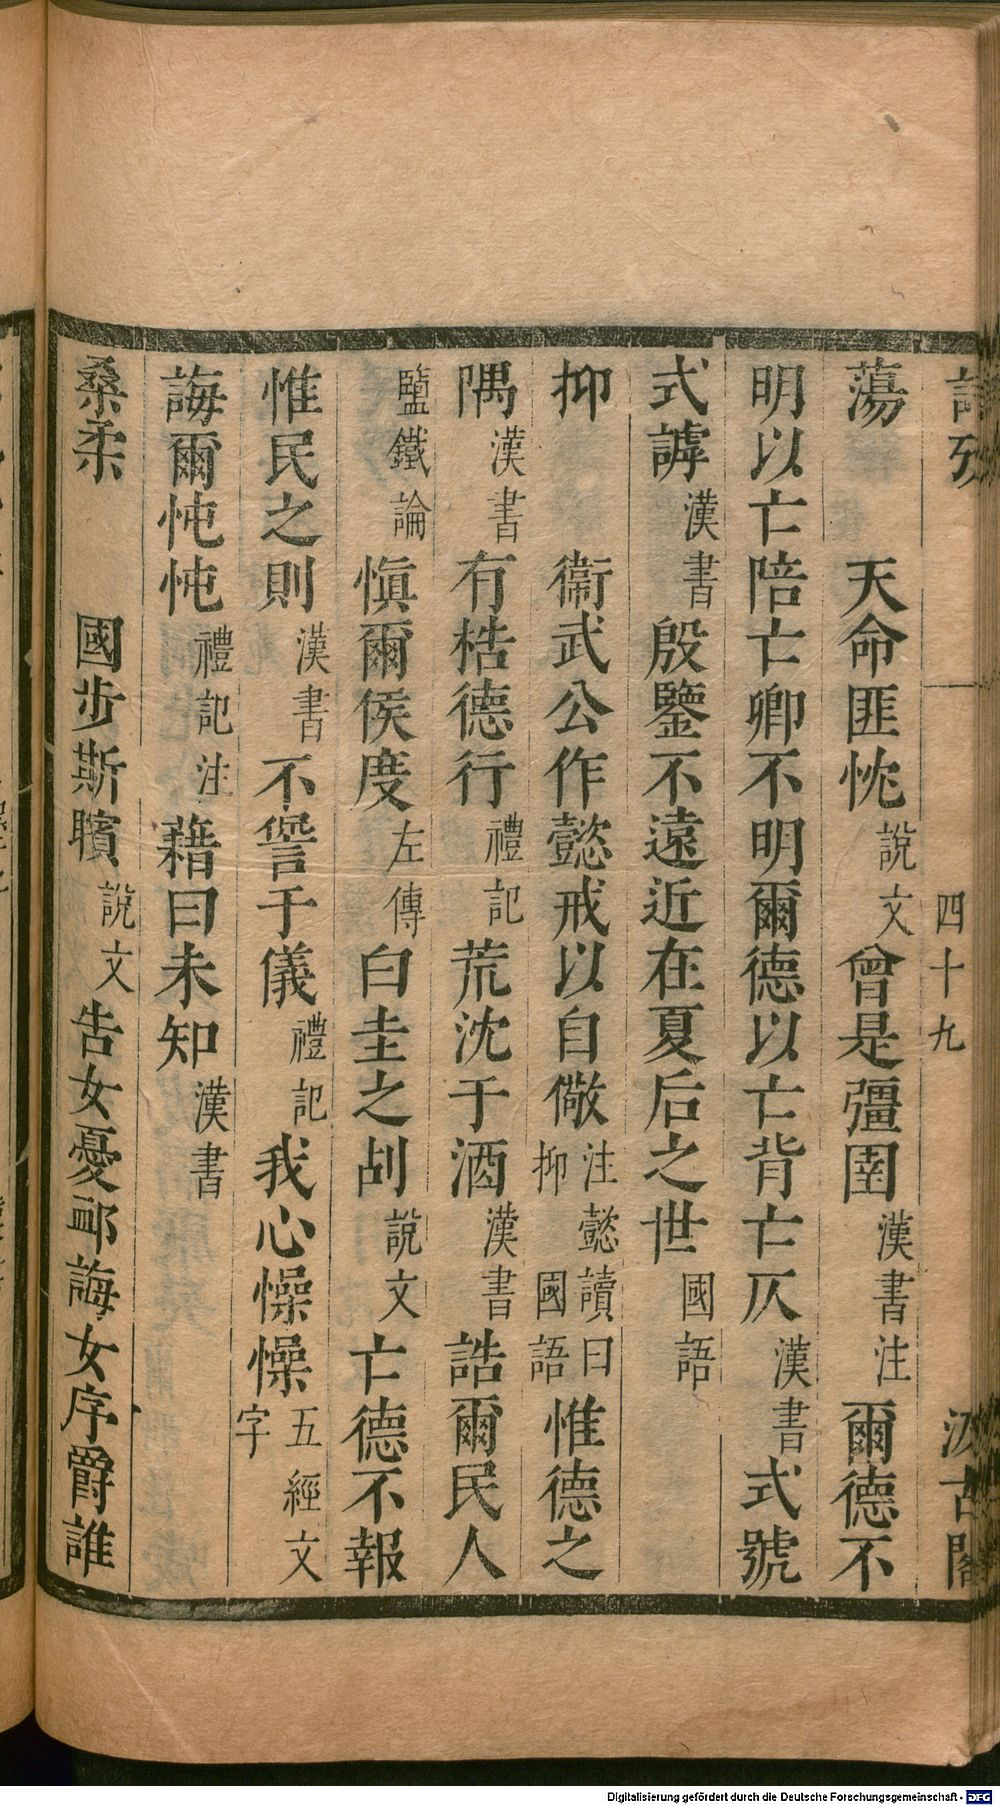 詩攷 四十九 汲古閣
蕩 天命匪忱說文曾是彊圉漢書注爾德不
明以亡陪亡卿不明爾德以亡背亡仄漢書式號
式謼漢書殷鑒不遠近在夏后之世國語
抑 衞武公作懿戒以自儆注懿讀曰抑國語惟德之
隅漢書有梏德行禮記荒沈于酒漢書誥爾民人
鹽鐵論愼爾侯度左傳白圭之㓤說文亡德不報
惟民之則漢書不諐于儀禮記我心懆懆五經文字
誨爾忳忳禮記注藉曰未知漢書
桑柔 國步斯矉說文告女憂卹誨女序爵誰
Digitalisierung gefördert durch die Deutsche Forschungsgemeinschaft - DFG